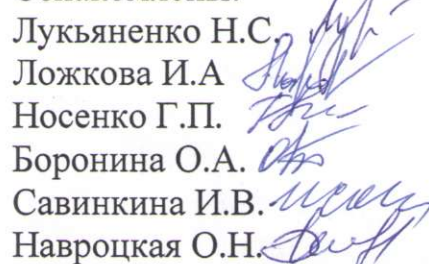 Лукьяненко Н.С.
Ложкова И.А
Носенко Г.П.
Боронина О.А.
Савинкина И.В.
Навроцкая О.Н.